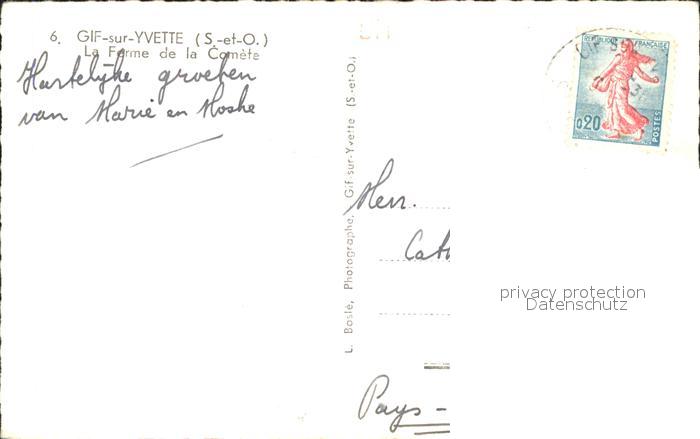 6. GIF-sur-YVETTE (S.-et-O.)
La Ferme de la Comète
Hartelijke groeten
van Marie en Moshe
L. Boslé, Photographe, Gif-sur-Yvette (S.-et-O.)
RÉPUBLIQUE FRANÇAISE
GIF SUR
0,20
POSTES
Herr.
Cath
privacy protection
Datenschutz
Pays-